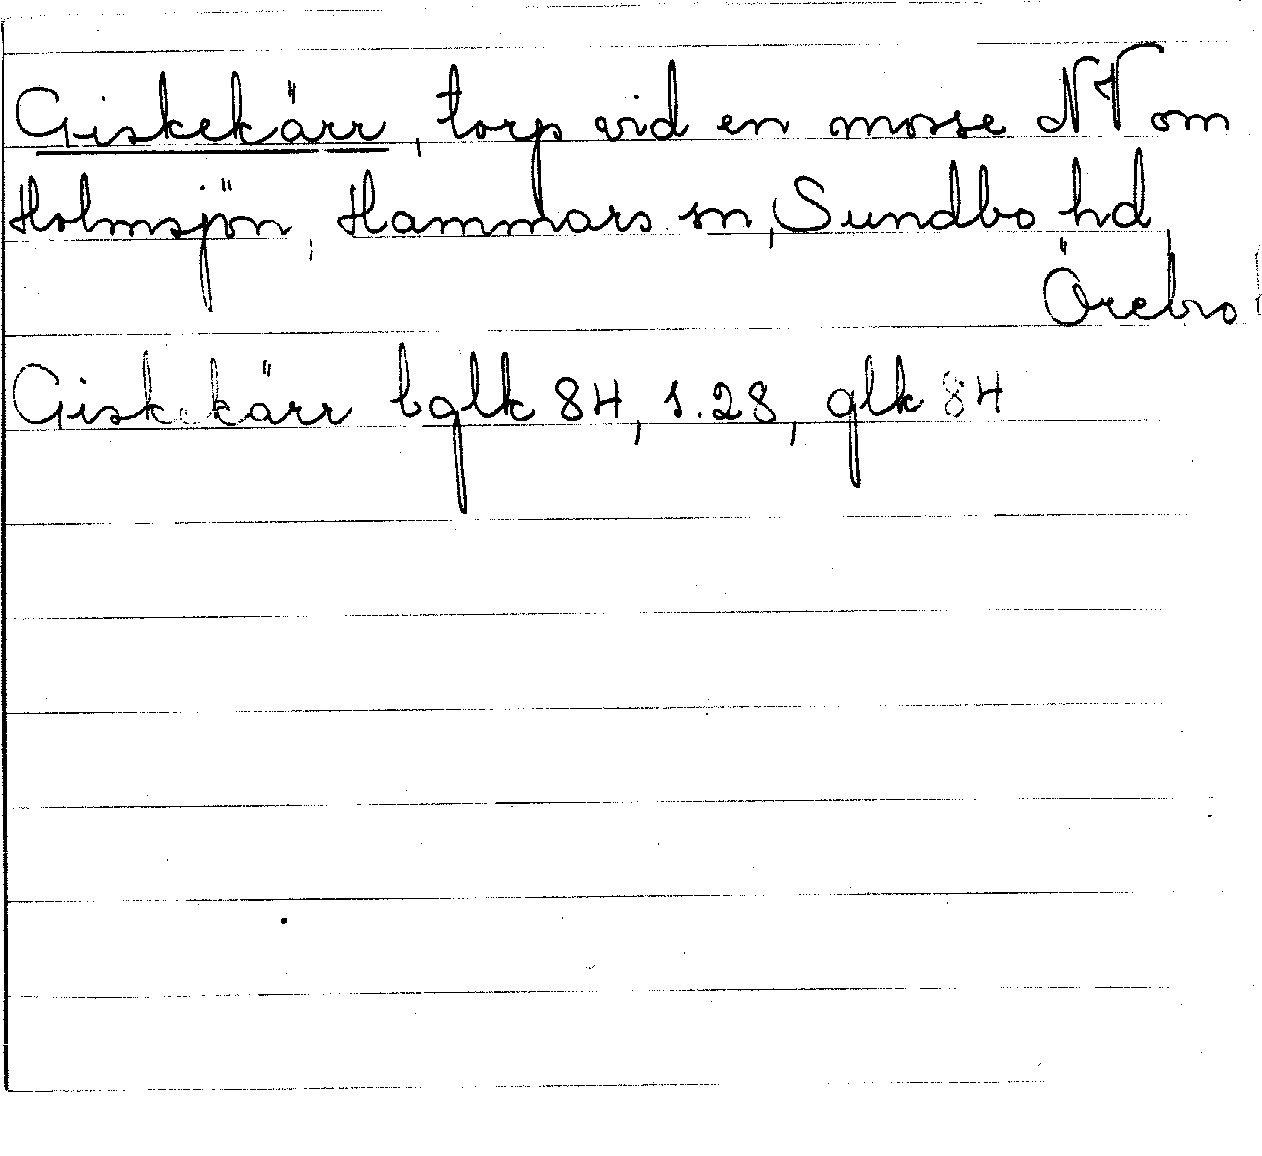 Giskekärr, torp vid en mosse NV om
Holmsjön, Hammars sn, Sundbo hd,
Örebro l
Giskekärr bglk 84, s. 28, glk 84